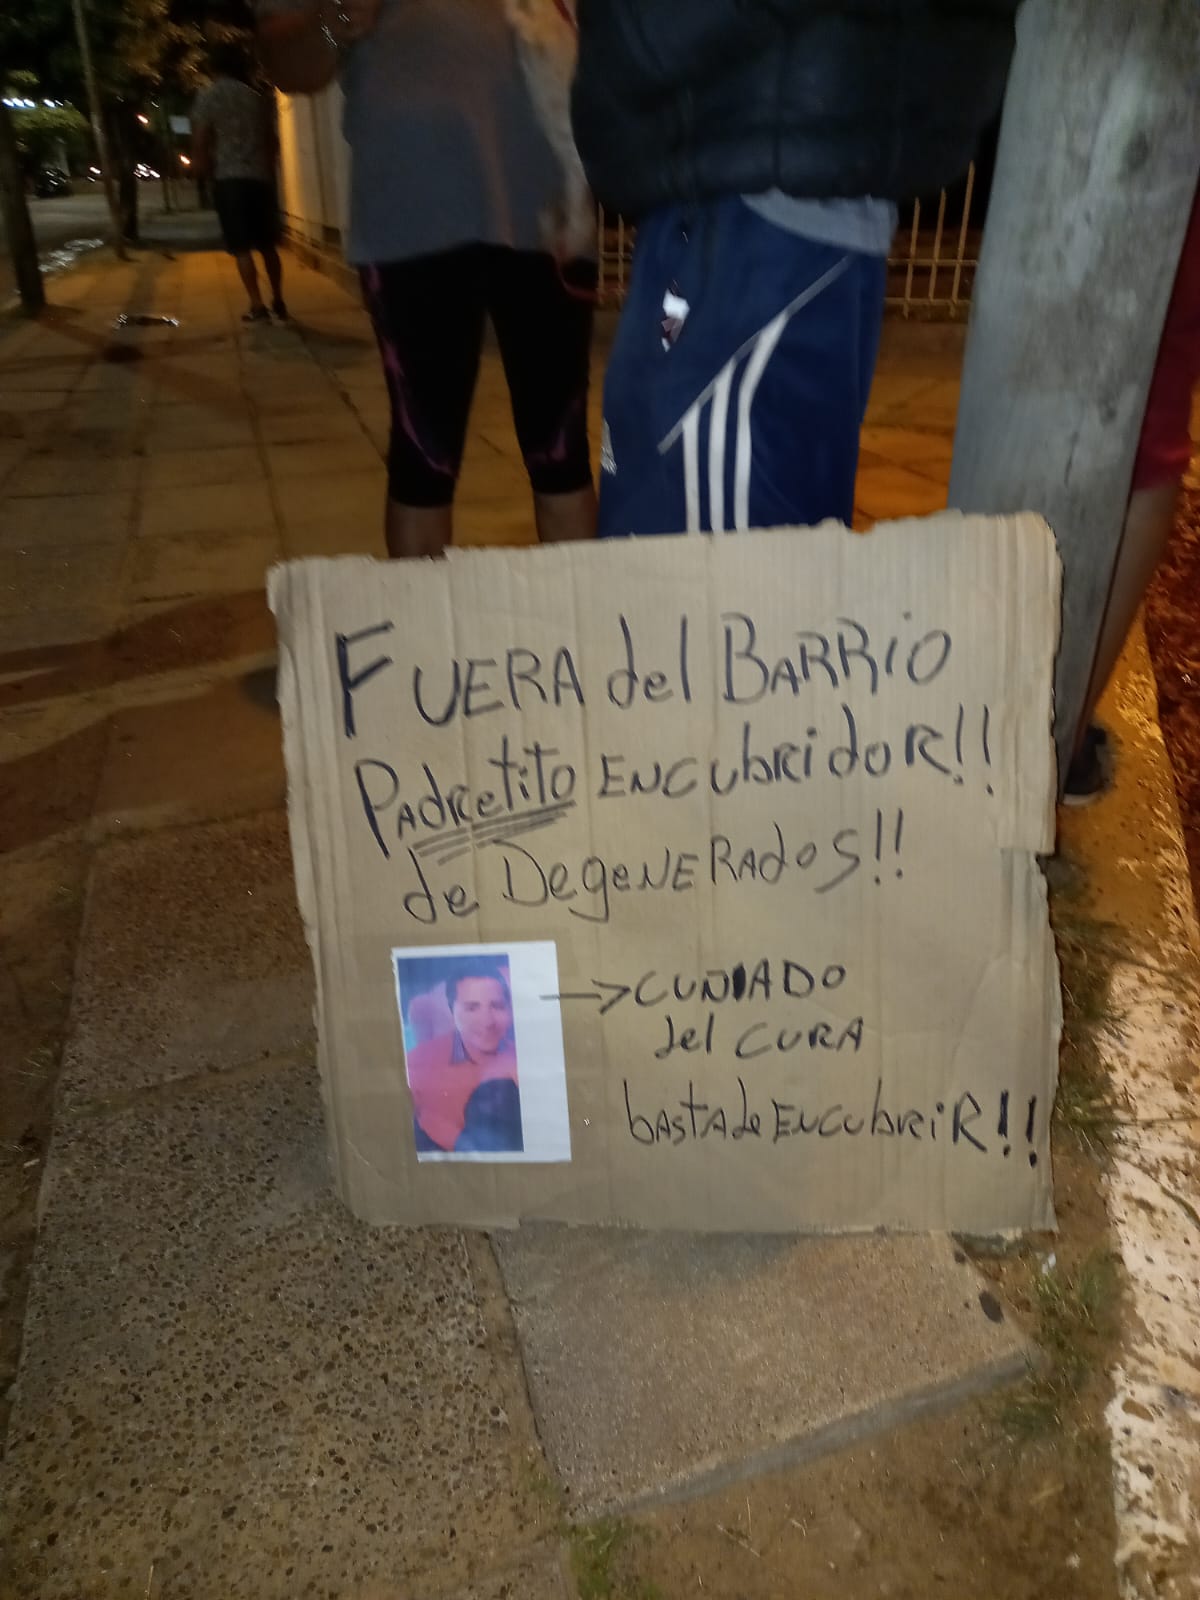 FUERA del BARRIO
Padrecito ENCUbRidOR!!
de DegeNERAdos!!
CUNIADO
del CURA
bASTA de ENCUbRiR!!